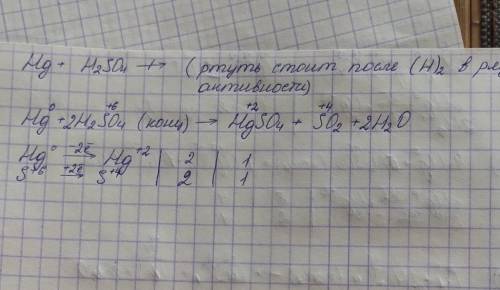 Hg + H₂SO₄ ↛ (ртуть стоит после (H)₂ в ря
активности)
Hg⁰ + 2H₂S⁺⁶O₄ (конц) → Hg⁺²SO₄ + S⁺⁴O₂ + 2H₂O
Hg⁰ –2e̅→ Hg⁺² | 2 | 1
S⁺⁶ +2e̅→ S⁺⁴ | 2 | 1